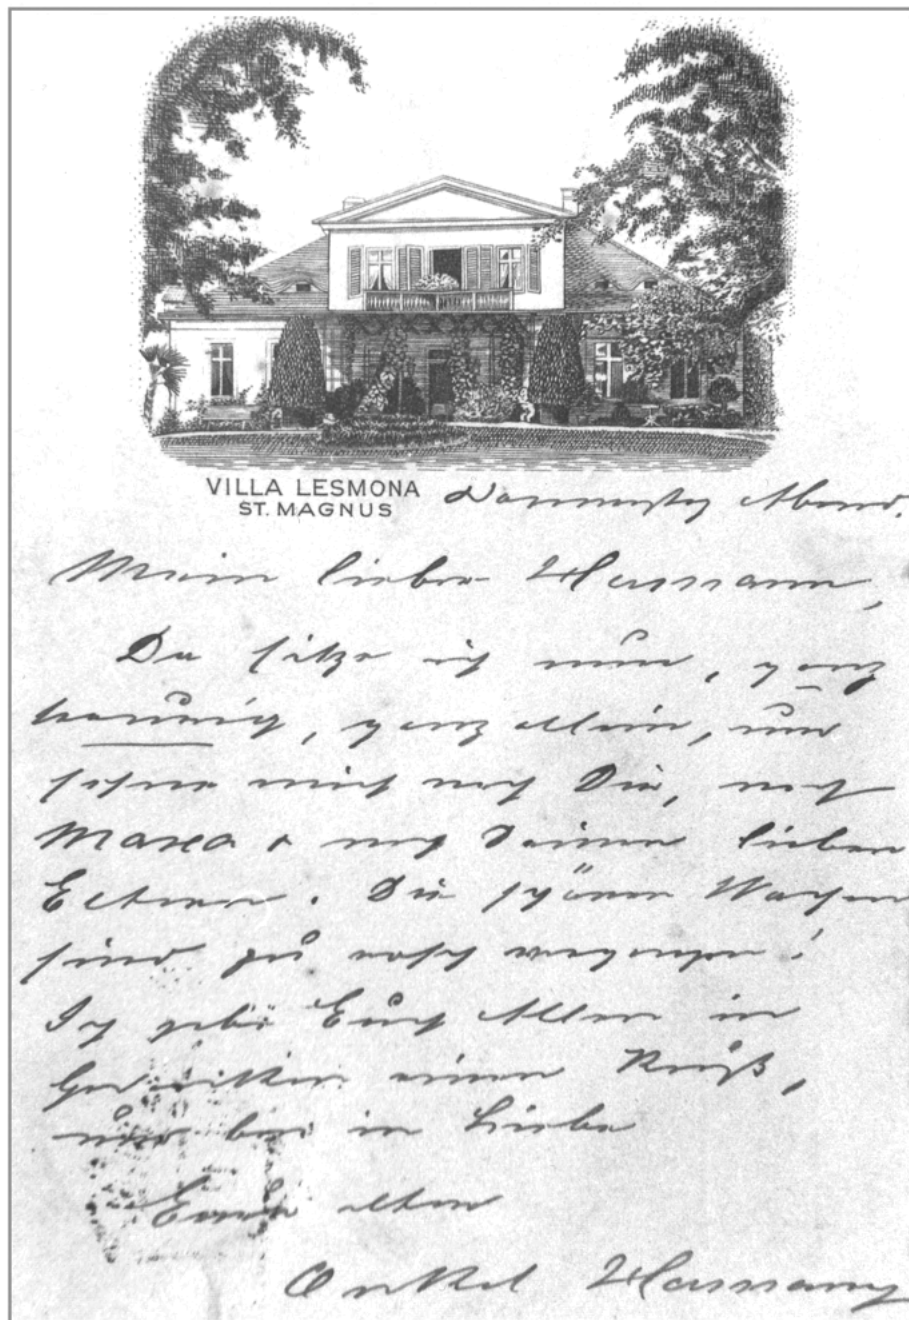 VILLA LESMONA
ST. MAGNUS
Donnerstag Abend.
Mein lieber Hermann,
Da sitze ich nun, ganz
traurig, ganz allein, und
sehne mich nach Dir, nach
Marea & nach Deinen lieben
Eltern. Die schönen Wochen
sind zu rasch vergangen!
Ich gebe Euch Allen in
Gedanken einen Kuß,
und bin in Liebe
Euer alter
Onkel Hermann